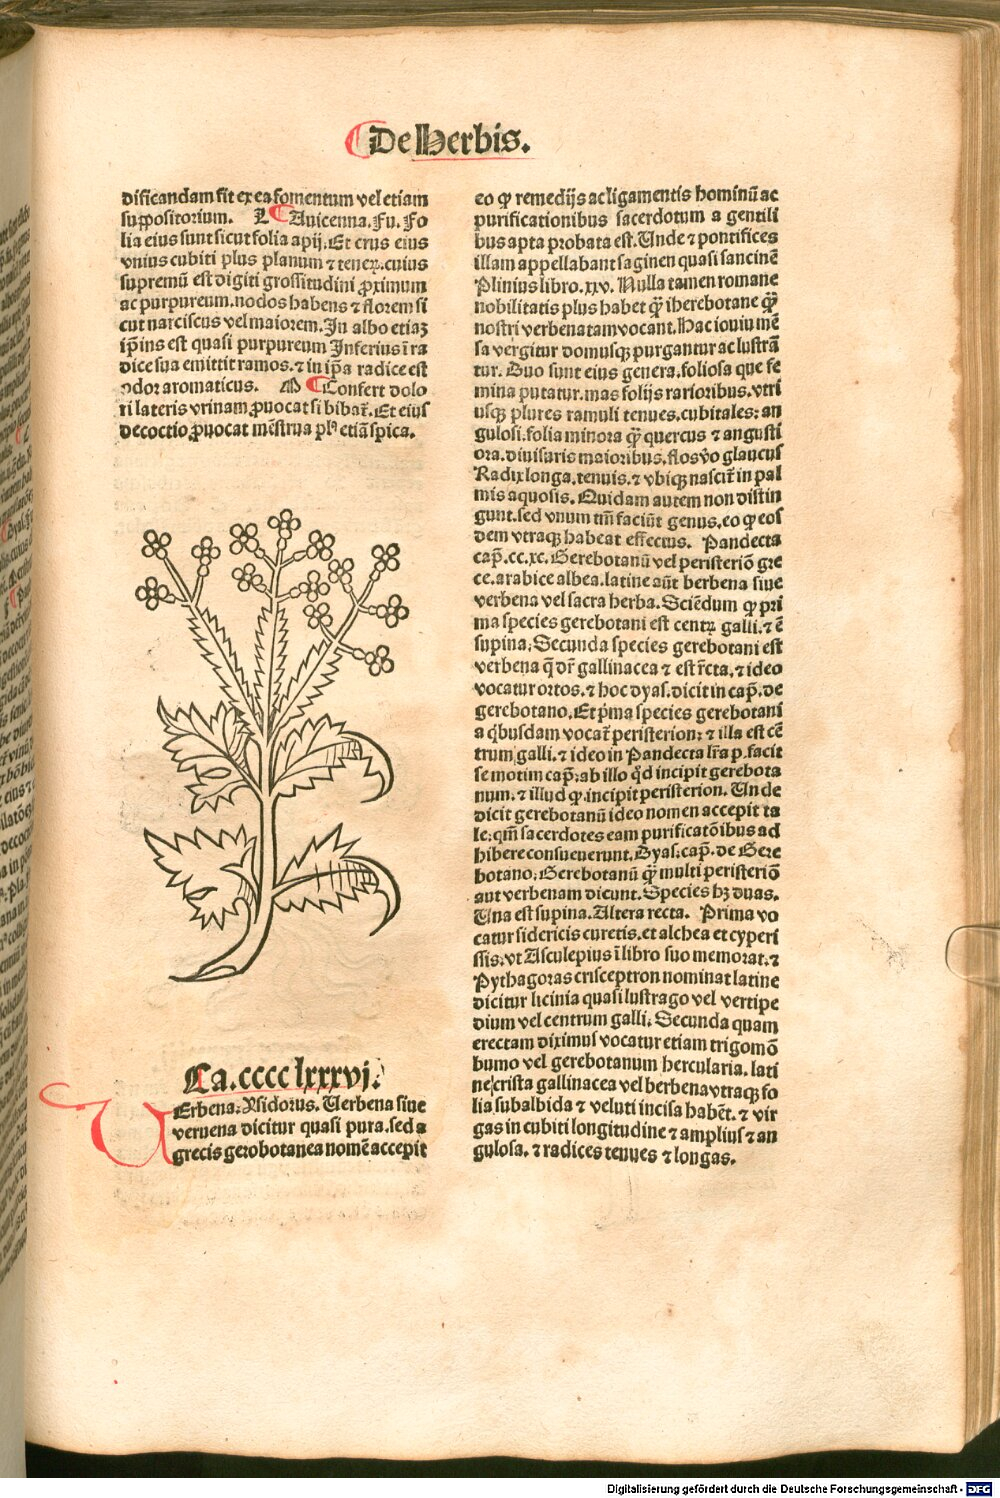 De Herbis.
dificandam fit ex ea fomentum vel etiam
suppositorium. L Auicenna. Fu. Fo
lia eius sunt sicut folia apij. Et crus eius
vnius cubiti plus planum ⁊ teneꝝ. cuius
supremū est digiti grossitudini ꝓximum
ac purpureum. nodos habens ⁊ florem si
cut narciscus vel maiorem. In albo etiaʒ
ip̄ius est quasi purpureum Inferius ī ra
dice sua emittit ramos. ⁊ in ip̄a radice est
odor aromaticus. M Confert dolo
ri lateris vrinam ꝓuocat si bibat̄. Et eius
decoctio ꝓuocat mēstrua plꝰ etiā spica.
Ca. cccc lxxxvj.
Erbena. Ysidorus. Uerbena siue
veruena dicitur quasi pura. sed a
grecis gerobotanea nomē accepit
eo ꝙ remedijs ac ligamentis hominū ac
purificationibus sacerdotum a gentili
bus apta probata est. Unde ⁊ pontifices
illam appellabant saginen quasi sancinē
Plinius libro. xxv. Nulla tamen romane
nobilitatis plus habet ꝙ̄ iherebotane ꝙ̄
nostri verbenatam vocant. Hac iouiu mē
sa vergitur domusqꝫ purgantur ac lustrā
tur. Duo sunt eius genera. foliosa que fe
mina putatur. mas folijs rarioribus. vtri
usqꝫ plures ramuli tenues. cubitales: an
gulosi. folia minora ꝙ̄ quercus ⁊ angusti
ora. diuisuris maioribus. flos v̊o glaucus
Radix longa. tenuis. ⁊ vbiqꝫ nascit̄ in pal
mis aquosis. Quidam autem non distin
gunt. sed vnum tm̄ faciūt genus. eo ꝙ eos
dem vtraqꝫ habeat effectus. Pandecta
cap̄. cc. xc. Gerebotanū vel peristeriō gre
ce. arabice albea. latine aūt berbena siue
verbena vel sacra herba. Sciēdum ꝙ pri
ma species gerebotani est centꝝ galli. ⁊ ē
supina. Secunda species gerebotani est
verbena q̄ dr̄ gallinacea ⁊ est r̄cta. ⁊ ideo
vocatur ortos. ⁊ hoc dyas. dicit in cap̄. de
gerebotano. Et pͥma species gerebotani
a qͥbusdam vocat̄ peristerion: ⁊ illa est cē
trum galli. ⁊ ideo in Pandecta lr̄a p. facit
se motim cap̄: ab illo qd̄ incipit gerebota
num. ⁊ illud ꝙ incipit peristerion. Un de
dicit gerebotanū ideo nomen accepit ta
le: qm̄ sacerdotes eam purificatōibus ad
hibere consueuerunt. Dyas. cap̄. de Gere
botano. Gerebotanū ꝙ̄ multi peristeriō
aut verbenam dicunt. Species hꝫ duas.
Una est supina. Altera recta. Prima vo
catur sidericis curetis. et alchea et cyperi
ssis. vt Asculepius ī libro suo memorat. ⁊
Pythagoras crisceptron nominat latine
dicitur licinia quasi lustrago vel vertipe
dium vel centrum galli. Secunda quam
erectam diximus vocatur etiam trigomō
bumo vel gerebotanum hercularia. lati
ne crista gallinacea vel berbena vtraqꝫ fo
lia subalbida ⁊ veluti incisa habēt. ⁊ vir
gas in cubiti longitudine ⁊ amplius ⁊ an
gulosa. ⁊ radices tenues ⁊ longas.
Digitalisierung gefördert durch die Deutsche Forschungsgemeinschaft - DFG